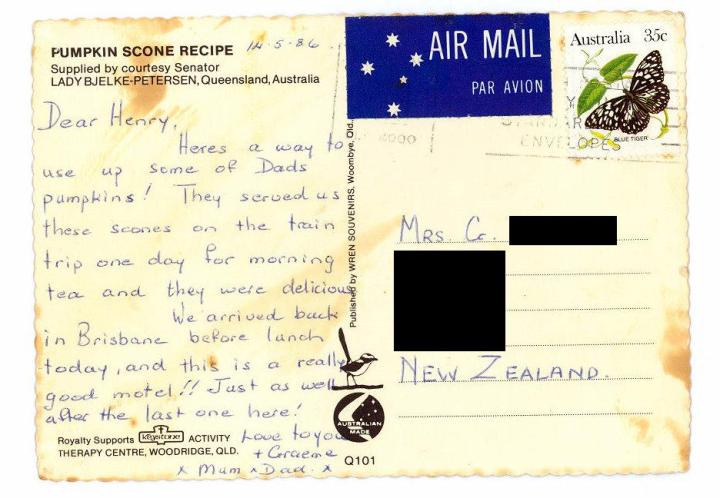 PUMPKIN SCONE RECIPE 14.5.86.
Supplied by courtesy Senator
LADY BJELKE-PETERSEN, Queensland, Australia
Dear Henry,
Heres a way to
use up some of Dads
pumpkins! They served us
these scones on the train
trip one day for morning
tea and they were delicious
We arrived back
in Brisbane before lunch
today, and this is a really
good motel!! Just as well
after the last one here!
Love to you
+ Graeme
x Mum x Dad. x
Royalty Supports keystone ACTIVITY
THERAPY CENTRE, WOODRIDGE, QLD.
Published by WREN SOUVENIRS, Woombye, Qld.
AUSTRALIAN
MADE
Q101
AIR MAIL
PAR AVION
Australia 35c
BLUE TIGER
4000
ENVELOPES
MRS G.
NEW ZEALAND.